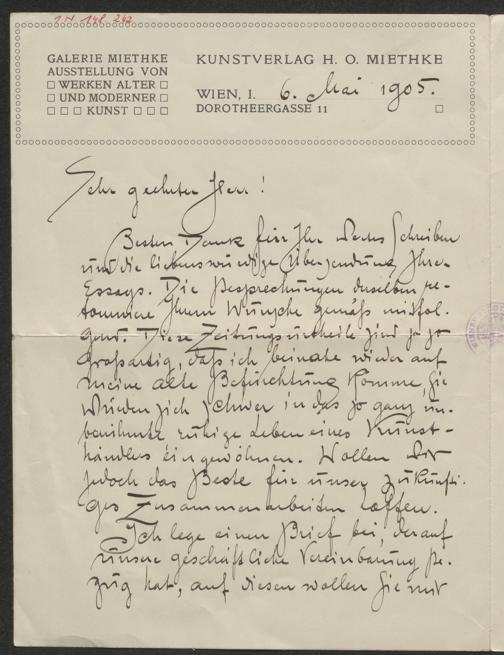 IN 148 242
GALERIE MIETHKE
AUSSTELLUNG VON
WERKEN ALTER
UND MODERNER
KUNST
KUNSTVERLAG H. O. MIETHKE
WIEN, I. 6. Mai 1905.
DOROTHEERGASSE 11
Sehr geehrter Herr!
Besten Dank für Ihr wertes Schreiben
und die liebenswürdige Übersendung Ihrer
Essays. Die Besprechungen derselben re-
tourniere Ihrem Wunsche gemäß mitfol-
gend. Diese Zeitungsurteile sind ja so
großartig, daß ich beinahe wieder auf
meine alte Befürchtung komme, Sie
würden sich schwer in das so ganz un-
berühmte ruhige Leben eines Kunst-
händlers eingewöhnen. Wollen wir
jedoch das Beste für unser zukünfti-
ges Zusammenarbeiten hoffen.
Ich lege einen Brief bei, der auf
unsere geschäftliche Vereinbarung Be-
zug hat, auf diesen wollen Sie mir